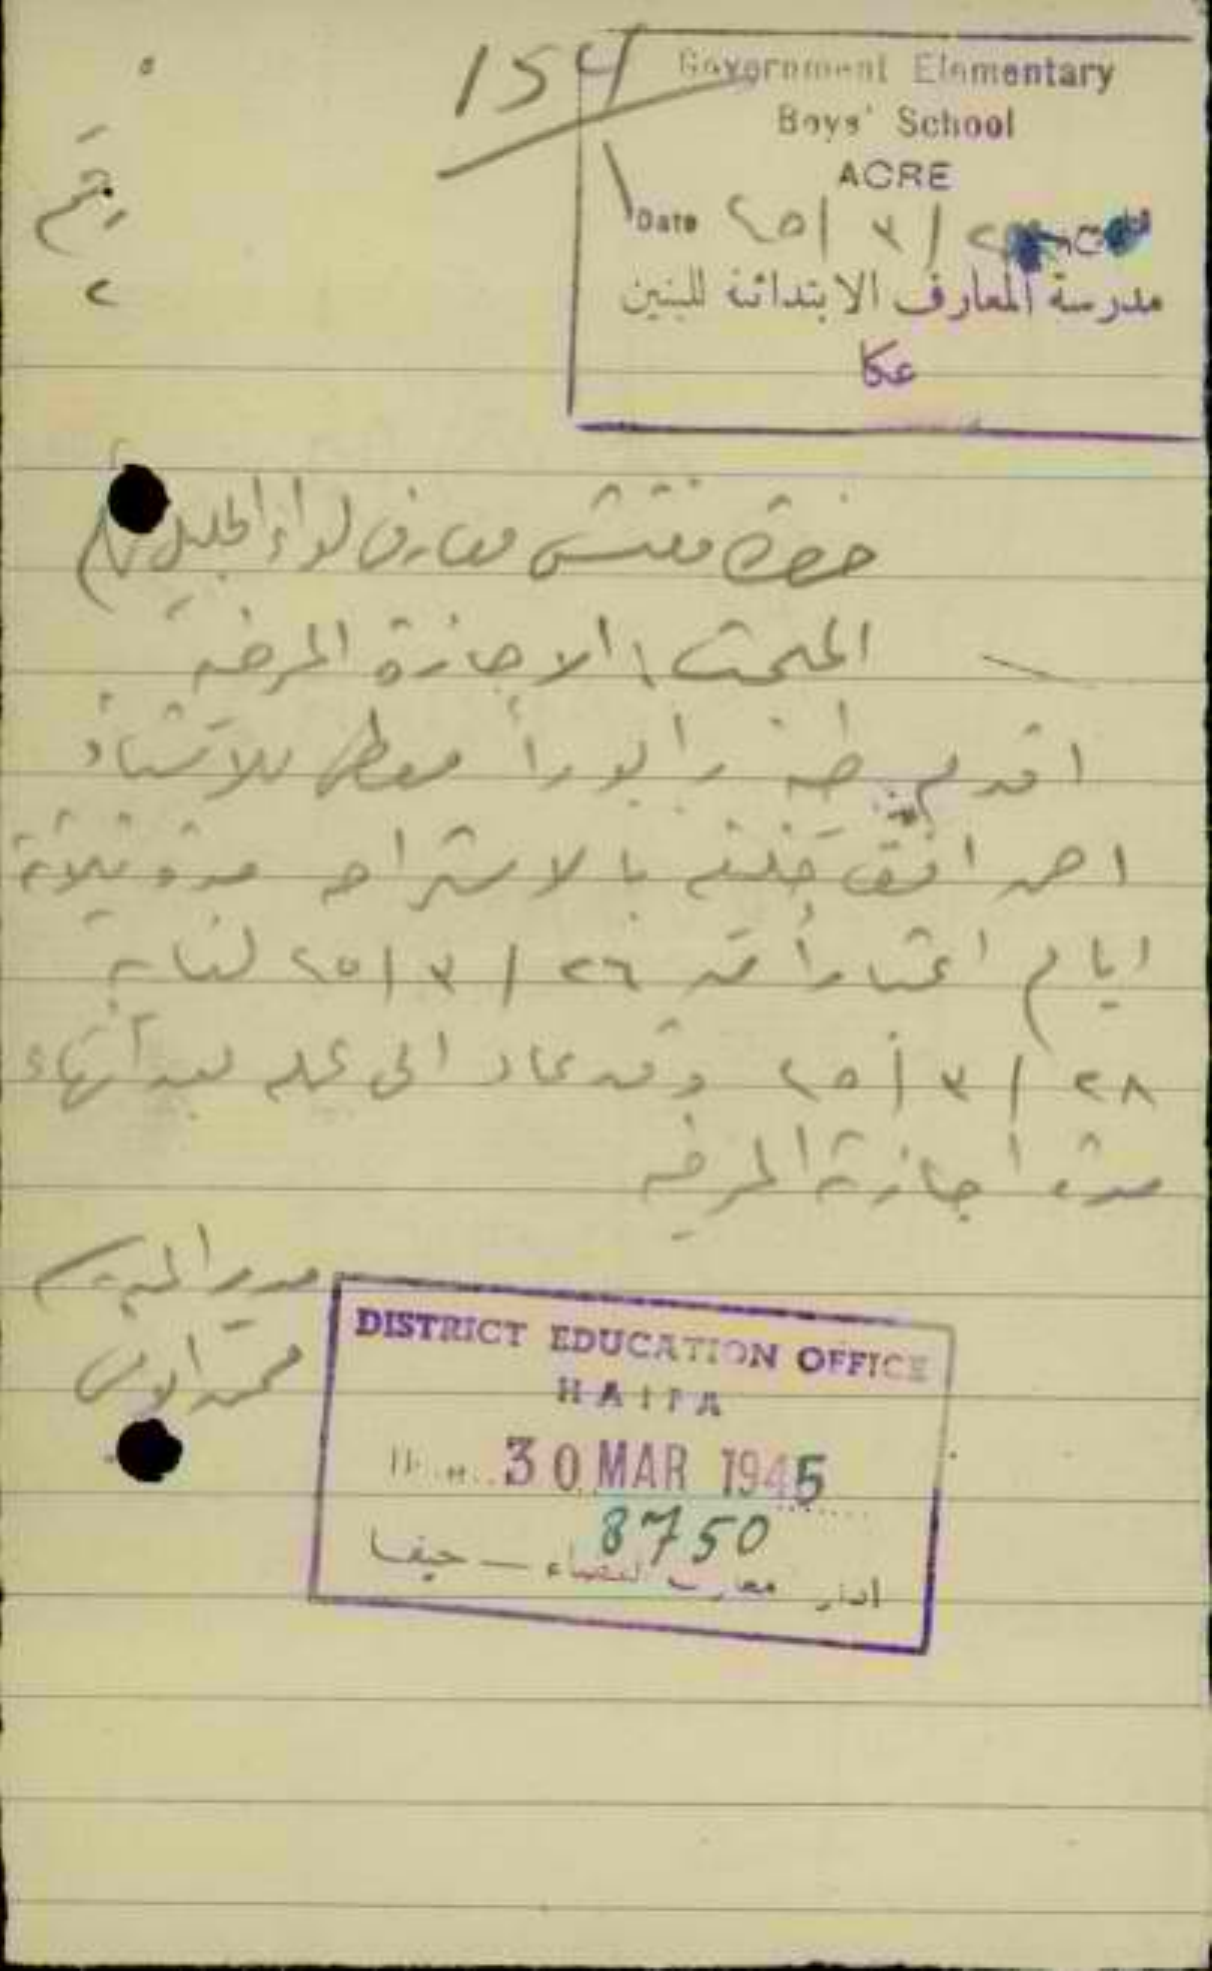 154
Government Elementary
Boys' School
ACRE
Date ٤٥/٣/
مدرسة المعارف الابتدائية للبنين
عكا
رقم
٢
حضرة مفتش معارف لواء الجليل
المبحث \ الاجازة المرضية
اقدم طيه رابورا معطى للاستاذ
احمد بالاستراحه مدة ثلاثة
ايام اعتبارا من ٢٦/٣/٤٥ لغاية
٢٨/٣/٤٥ وقد عاد الى عمله بعد انتهاء
مدة اجازته المرضيه
مدير المدرسة
DISTRICT EDUCATION OFFICE
HAIFA
30 MAR 1945
8750
معارف القضاء — حيفا